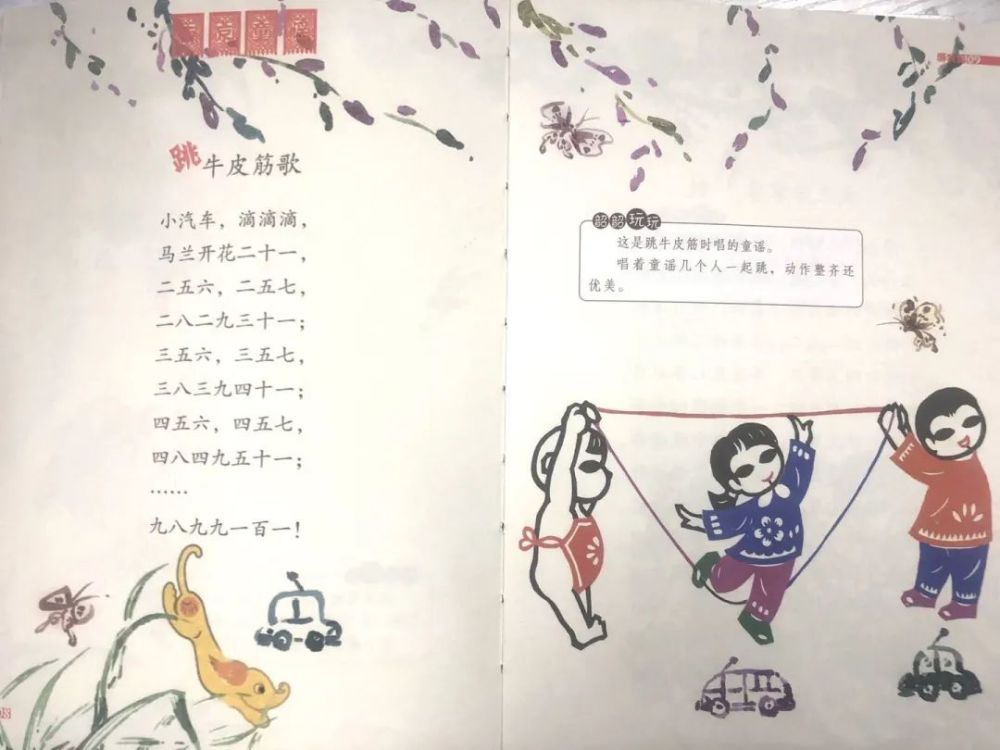 跳牛皮筋歌
小汽车，滴滴滴，
马兰开花二十一，
二五六，二五七，
二八二九三十一；
三五六，三五七，
三八三九四十一；
四五六，四五七，
四八四九五十一；
……
九八九九一百一！
韶韶玩玩
这是跳牛皮筋时唱的童谣。
唱着童谣几个人一起跳，动作整齐还
优美。